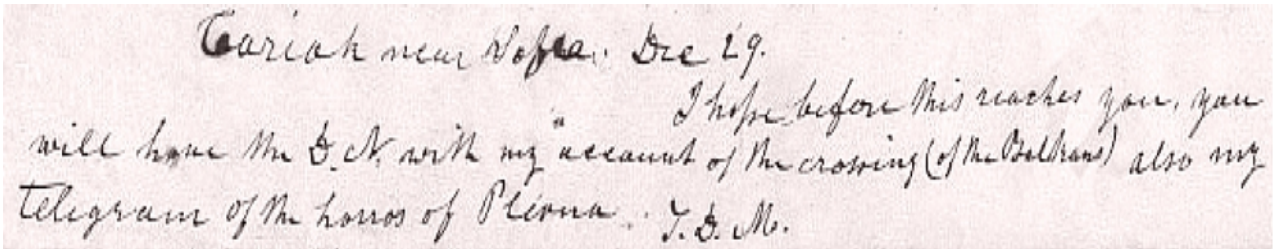 Tariak near Sofia. Dec 29.
I hope before this reaches you, you
will have the D. N. with my account of the crossing (of the Balkans) also my
Telegram of the horros of Plevna. F. D. M.